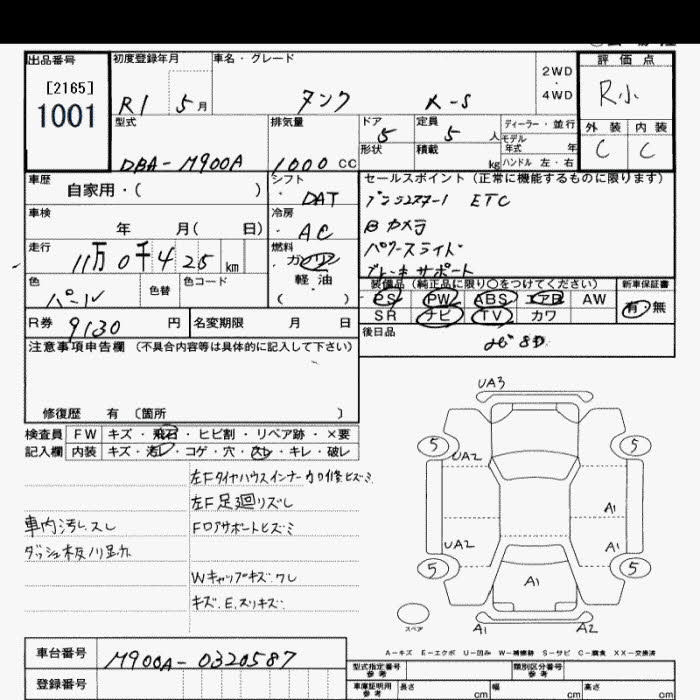 出品番号
[2165]
1001
初度登録年月
R1 5月
車名・グレード
タンク X-S
2WD
・
4WD
評価点
R小
外装 内装
C C
型式
DBA-M900A
排気量
1000 CC
ドア
5
定員
5人
形状
積載
kg
ディーラー・並行
モデル
年式 年
ハンドル 左・右
車歴
自家用・( )
シフト
・DAT
車検
年 月( 日)
冷房
・AC
走行
11万0千425km
燃料
ガソリン
軽油
( )
色
パール
色替
色コード
R券 9130 円
名変期限 月 日
セールスポイント(正常に機能するものに限ります)
ETC
Bカメラ
パワースライド
ブレーキサポート
装備品(純正品に限り○をつけてください)
PS PW ABS エアB AW
SR ナビ TV カワ
新車保証書
有・無
後日品
注意事項申告欄(不具合内容等は具体的に記入して下さい)
修復歴 有 〔箇所 〕
検査員
記入欄
FW キズ・飛石・ヒビ割・リペア跡・×要
内装 キズ・汚レ・コゲ・穴・スレ・キレ・破レ
左Fタイヤハウスインナー カロ修ヒズミ
左F足廻リズレ
車内汚レスレ
Fロアサポートヒズミ
Wキャップキズ.ワレ
キズ.E.スリキズ
UA3
5
5
UA2
A1
UA2
A1
5
5
A1
スペア
A1
A2
A-キズ E-エクボ U-凹み W-補修跡 S-サビ C-腐食 XX-交換済
車台番号
M900A-0320587
登録番号
型式指定番号
参考
類別区分番号
参考
車庫証明用
参考
長さ cm
幅 cm
高さ cm